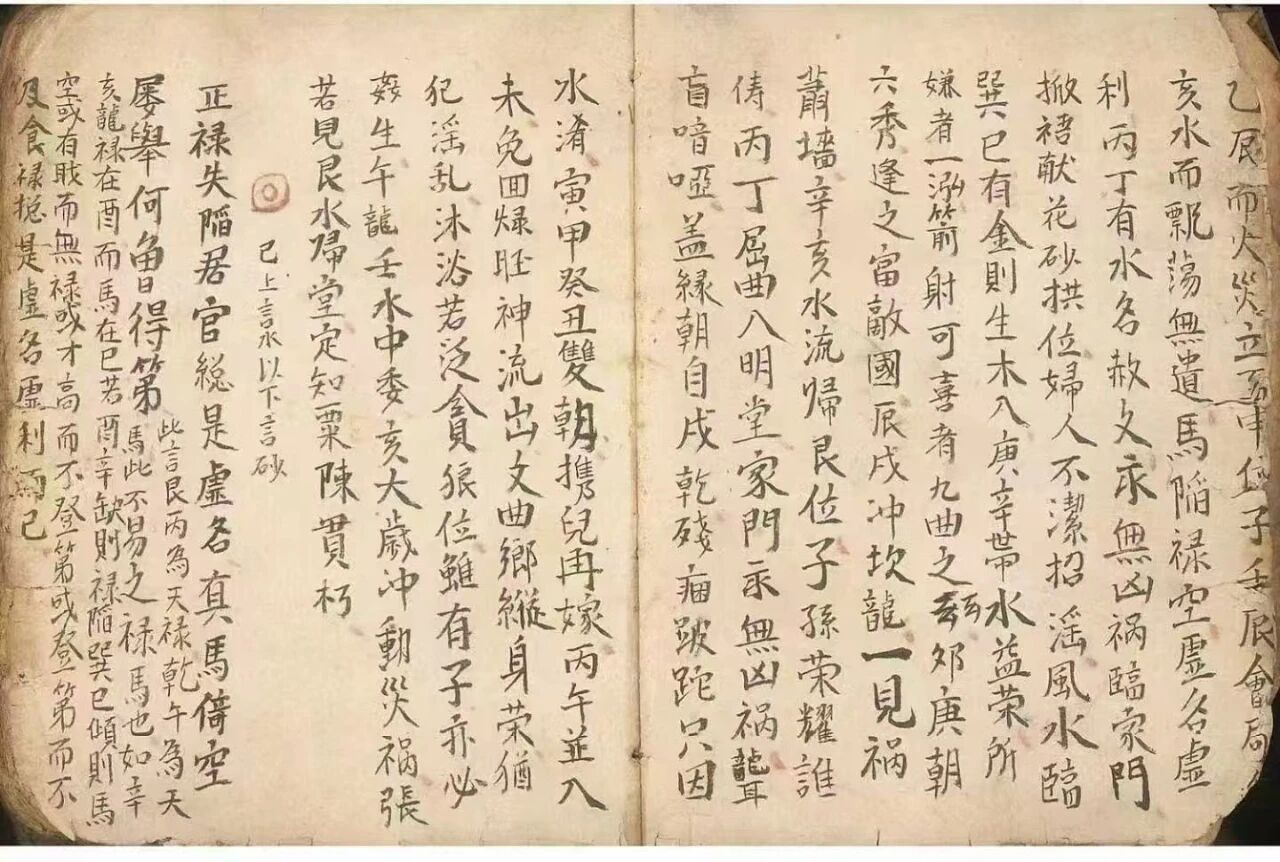 乙辰而火災立至申坎子壬辰會局
亥水而飄蕩無遺馬陷禄空虛名虛
利丙丁有水名赦文永無凶祸臨家門
掀裙献花砂拱位婦人不潔招淫風水臨
巽巳有金則生木入庚辛帶水益荣所
嫌者一泓箭射可喜者九曲之玄卯庚朝
六秀逢之富敵國辰戌冲坎龍一見祸
蕭墻辛亥水流歸艮位子孫荣耀誰
儔丙丁屈曲入明堂家門永無凶祸聾
盲喑啞盖緣朝自戌乾殘痼跛跎只因
水淆寅甲癸丑雙朝携兒再嫁丙午並入
未免回禄旺神流出文曲鄉縱身荣猶
犯淫乱沐浴若泛貪狼位雖有子亦必
姦生午龍壬水中委亥大歲冲動災祸張
若見艮水歸堂定知粟陳貫朽
已上言水以下言砂
正禄失陷居官総是虛名真馬倚空
屡舉何曾得第
此言艮丙為天禄乾午為天
馬此不易之禄馬也如辛
亥龍禄在酉而馬在巳若酉辛缺則禄陷巽巳傾則馬
空或有戝而無禄或才高而不登第或登第而不
及食禄捴是虛名虛利而已